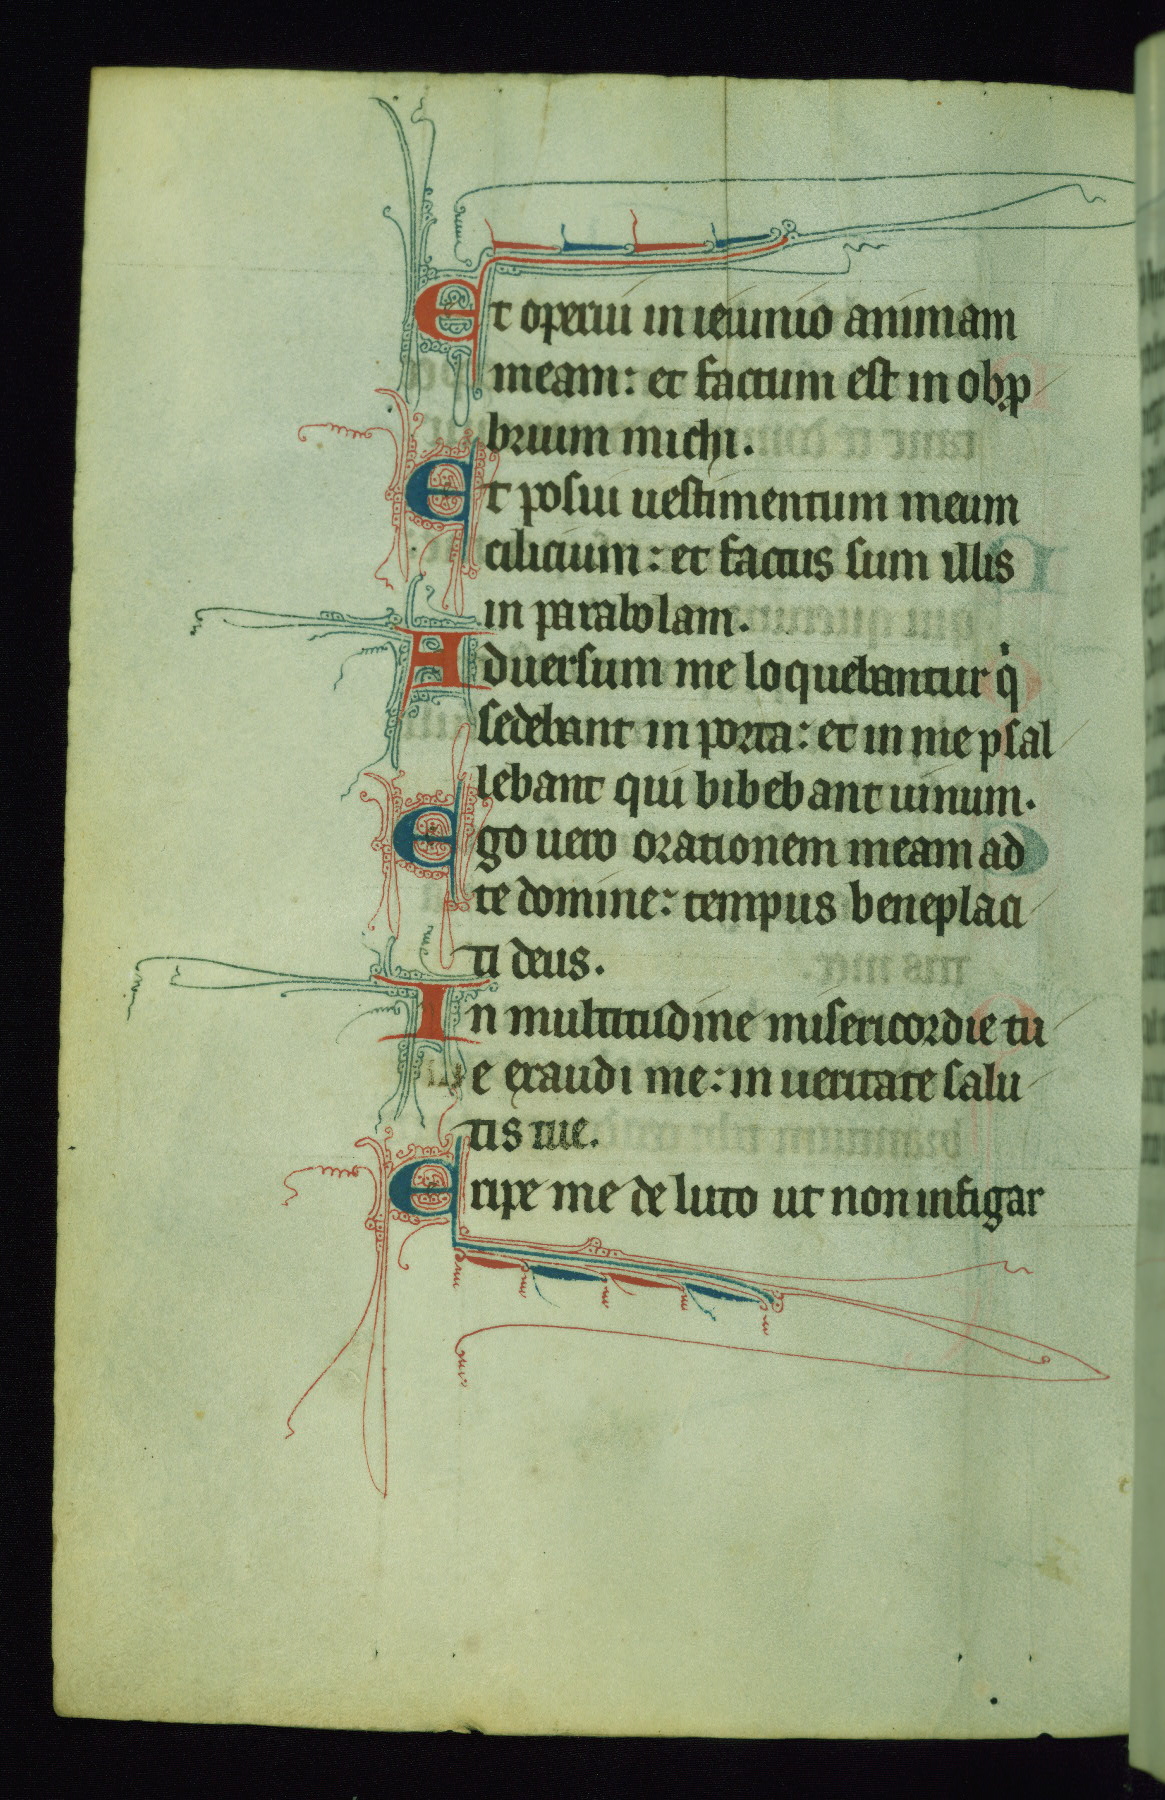 Et operui in ieiunio animam
meam: et factum est in obꝓ
brium michi.
Et posui uestimentum meum
cilicium: et factus sum illis
in parabolam.
Aduersum me loquebantur qͥ
sedebant in porta: et in me psal
lebant qui bibebant uinum.
Ego uero orationem meam ad
te domine: tempus beneplaci
ti deus.
In multitudine misericordie tu
e exaudi me: in ueritate salu
tis tue.
Eripe me de luto ut non infigar